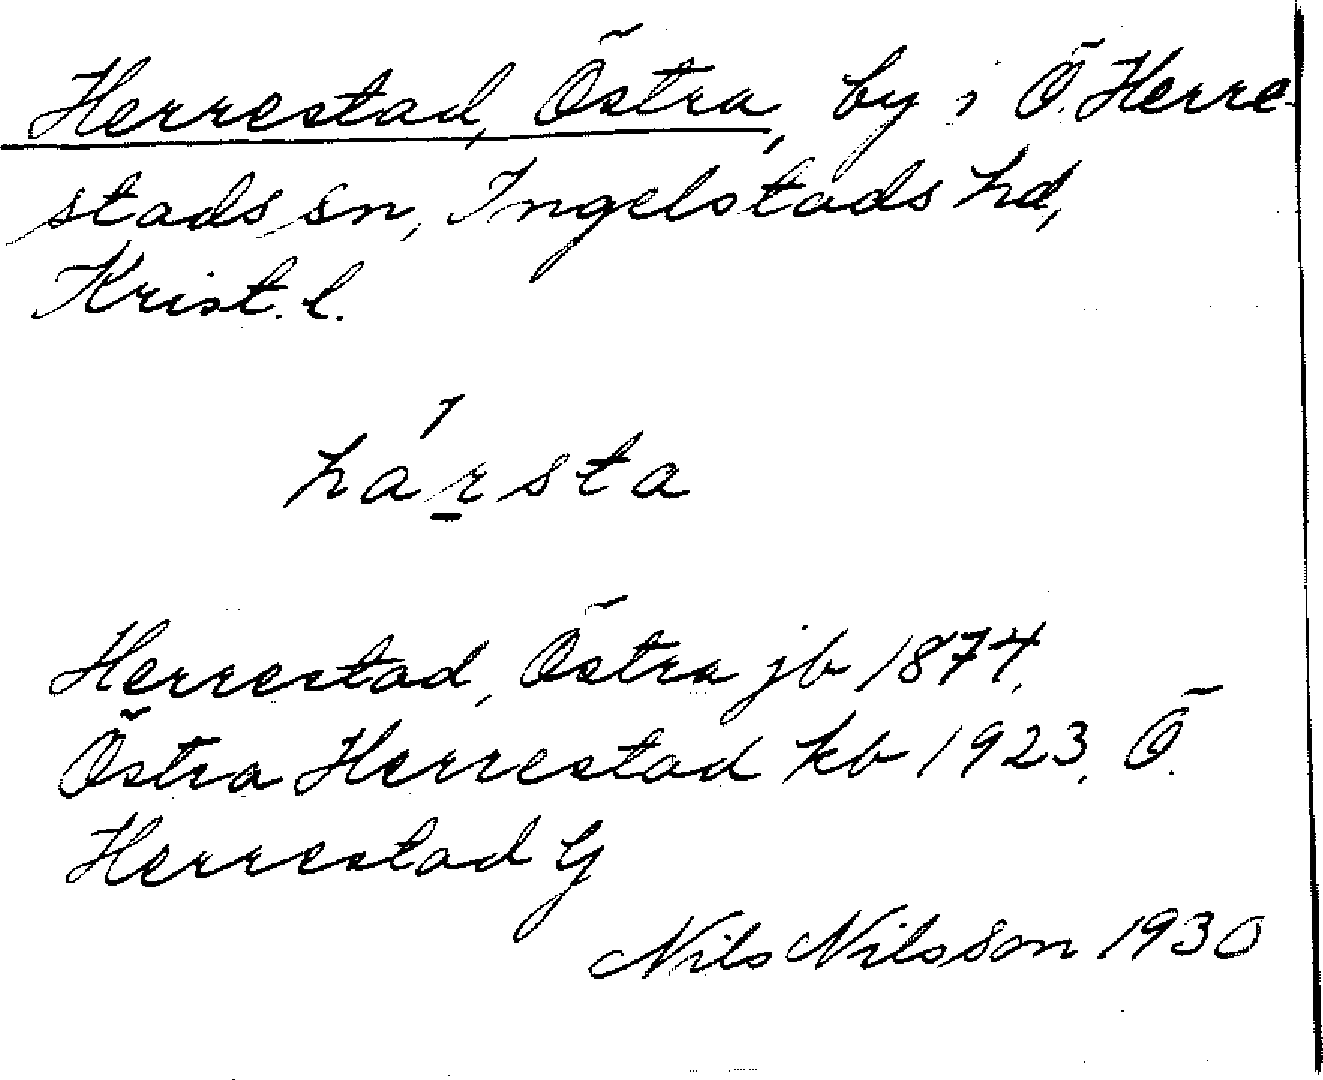 Herrestad, Östra, by i Ö. Herre-
stads sn, Ingelstads hd,
Krist. l.
hársta
Herrestad, Östra jb 1874.
Östra Herrestad kb 1923. Ö.
Herrestad G
Nils Nilsson 1930